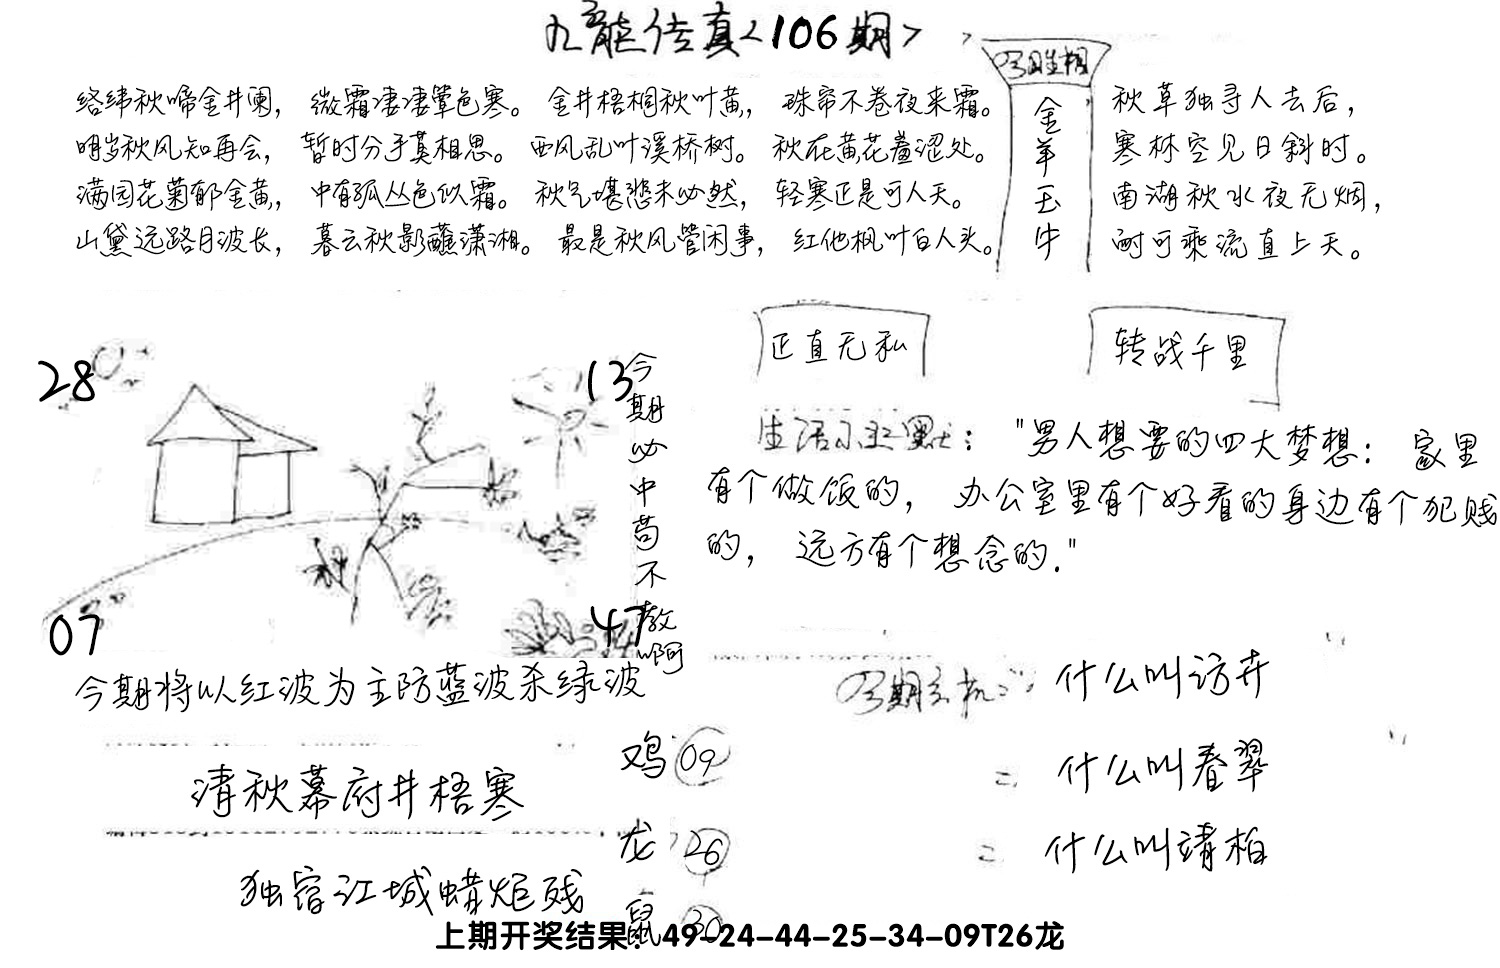 九龙传真<106期>
今日生相
金羊玉牛
络纬秋啼金井阑，微霜凄凄簟色寒。金井梧桐秋叶黄，珠帘不卷夜来霜。
明岁秋风知再会，暂时分手莫相思。西风乱叶溪桥树。秋在黄花羞涩处。
满园花菊郁金黄，中有孤丛色似霜。秋气堪悲未必然，轻寒正是可人天。
山黛远路月波长，暮云秋影蘸潇湘。最是秋风管闲事，红他枫叶白人头。
秋草独寻人去后，
寒林空见日斜时。
南湖秋水夜无烟，
耐可乘流直上天。
正直无私
转战千里
28
13
07
47
今期必中苟不教啊
生活小幽默："男人想要的四大梦想：家里
有个做饭的，办公室里有个好看的身边有个犯贱
的，远方有个想念的."
今期将以红波为主防蓝波杀绿波
今期玄机：什么叫访卉
什么叫春翠
什么叫靖柏
清秋幕府井梧寒
独宿江城蜡炬残
鸡 09
龙 26
鼠 30
上期开奖结果：49-24-44-25-34-09T26龙